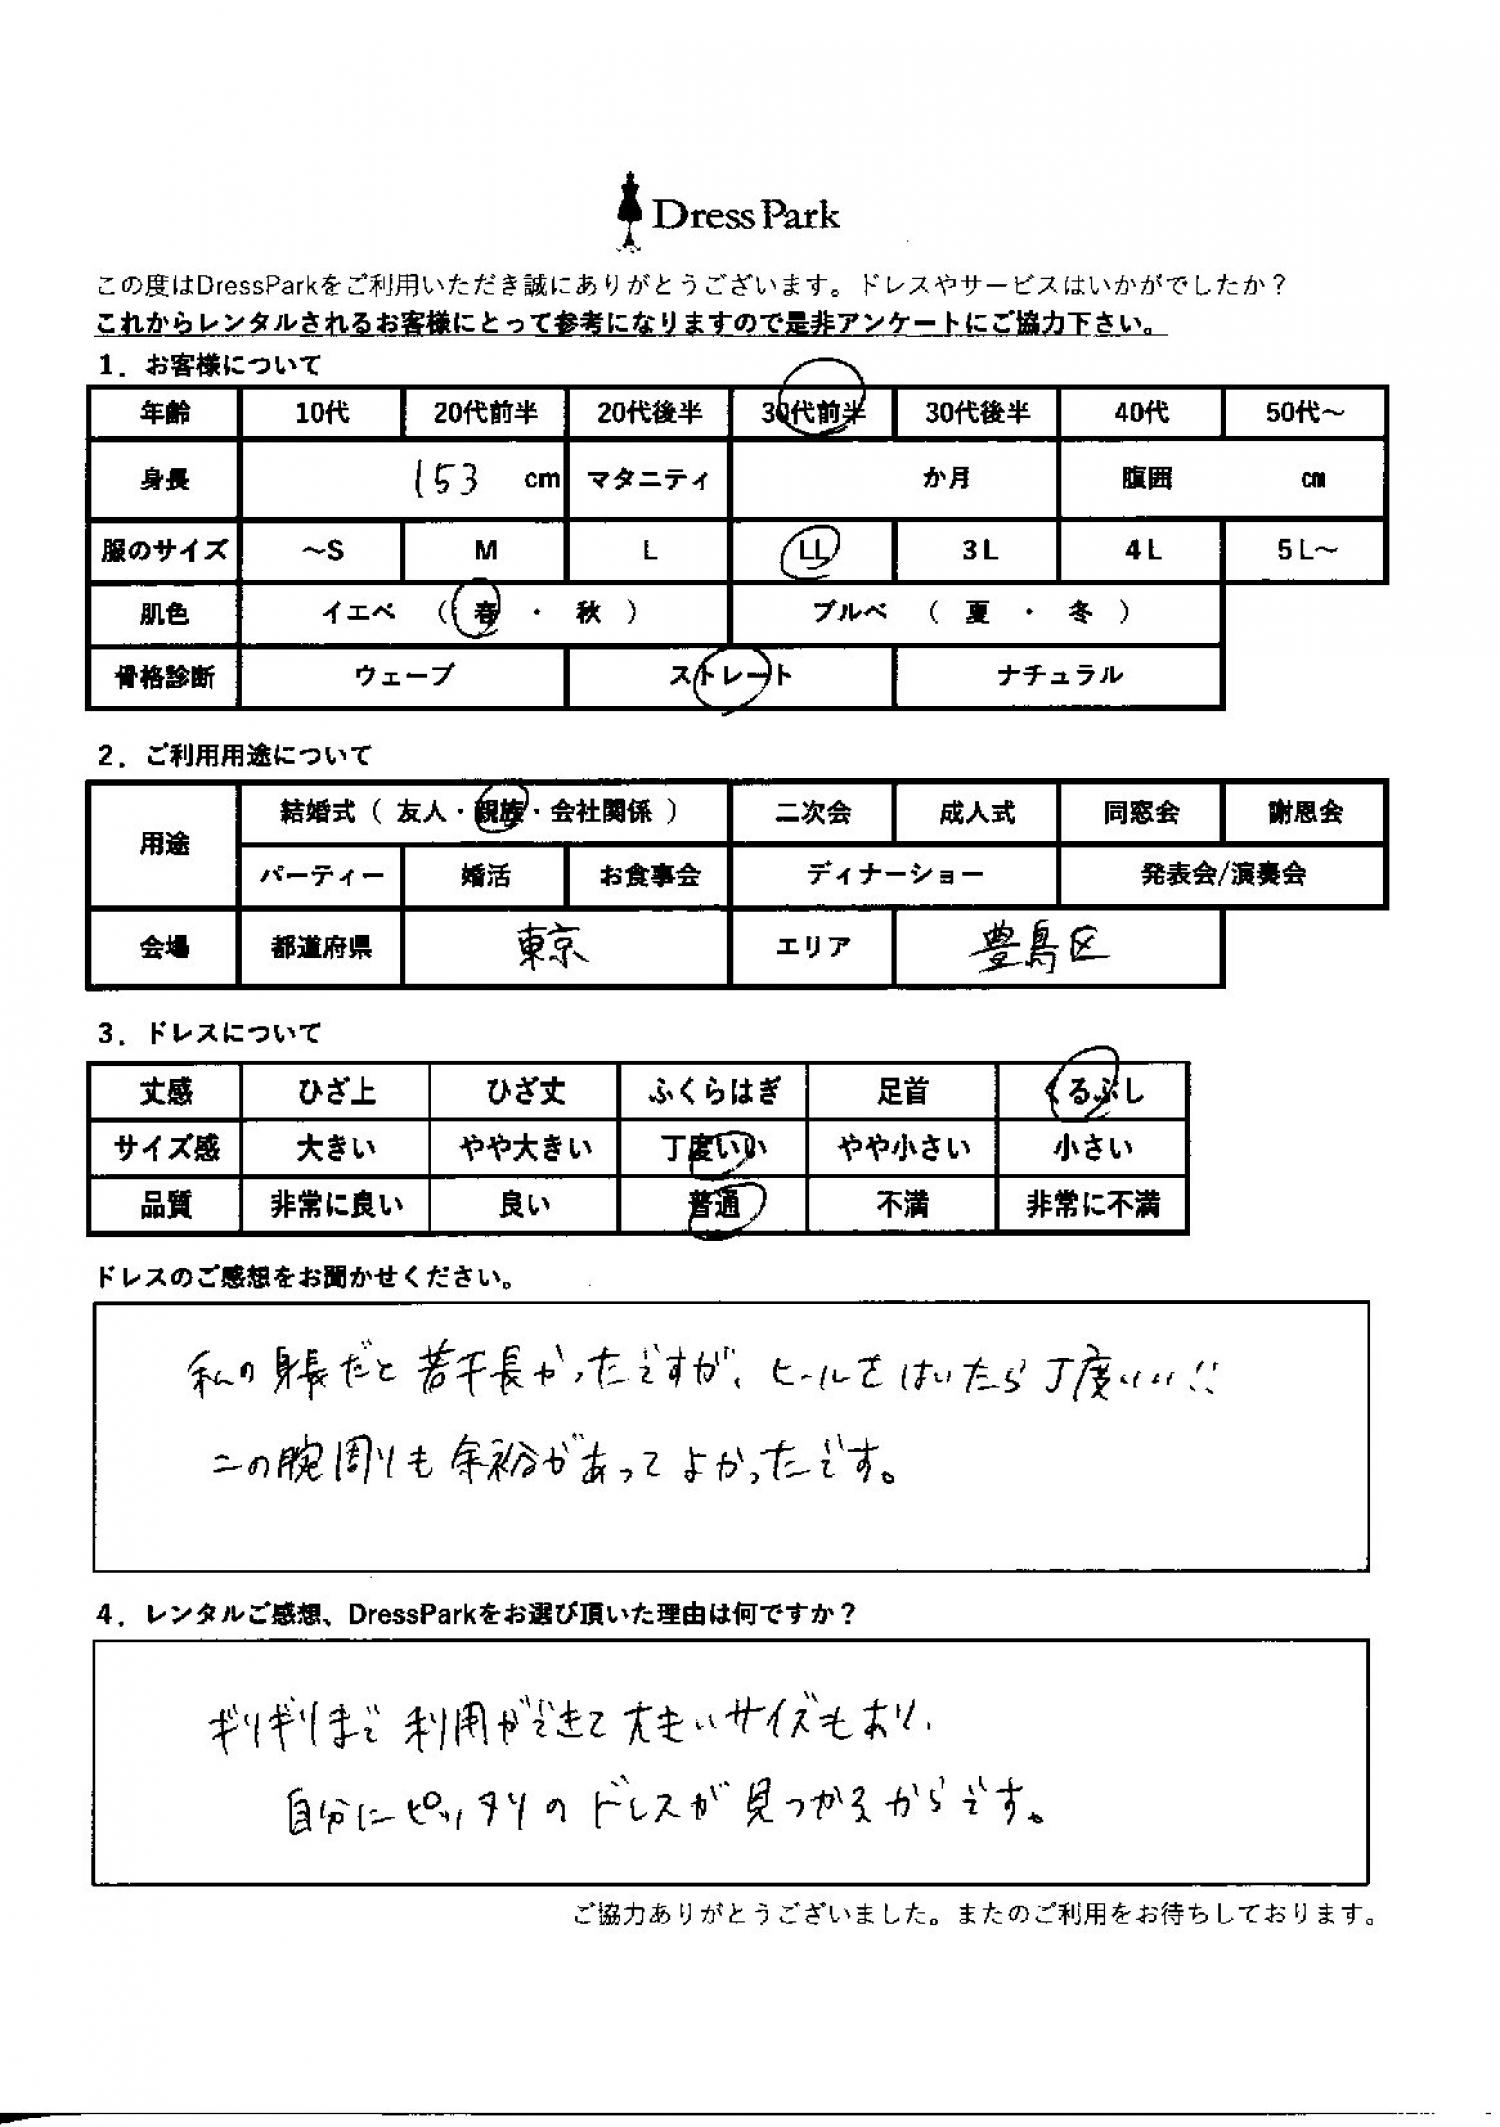 Dress Park
この度はDressParkをご利用いただき誠にありがとうございます。ドレスやサービスはいかがでしたか？
これからレンタルされるお客様にとって参考になりますので是非アンケートにご協力下さい。
1．お客様について
年齢 10代 20代前半 20代後半 30代前半 30代後半 40代 50代～
身長 153 cm マタニティ か月 腹囲 ㎝
服のサイズ ～S M L LL 3L 4L 5L～
肌色 イエベ （ 春 ・ 秋 ） ブルベ （ 夏 ・ 冬 ）
骨格診断 ウェーブ ストレート ナチュラル
2．ご利用用途について
用途 結婚式（ 友人・親族・会社関係 ） 二次会 成人式 同窓会 謝恩会
パーティー 婚活 お食事会 ディナーショー 発表会/演奏会
会場 都道府県 東京 エリア 豊島区
3．ドレスについて
丈感 ひざ上 ひざ丈 ふくらはぎ 足首 くるぶし
サイズ感 大きい やや大きい 丁度いい やや小さい 小さい
品質 非常に良い 良い 普通 不満 非常に不満
ドレスのご感想をお聞かせください。
私の身長だと若干長かったですが、ヒールをはいたら丁度いい!!
二の腕周りも余裕があってよかったです。
4．レンタルご感想、DressParkをお選び頂いた理由は何ですか？
ギリギリまで利用ができて大きいサイズもあり、
自分にピッタリのドレスが見つかるからです。
ご協力ありがとうございました。またのご利用をお待ちしております。